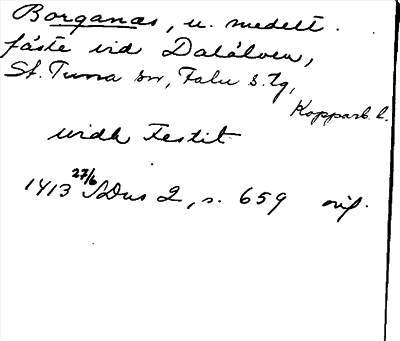 Borganäs, u. medelt.
fäste vid Dalälven,
St. Tuna sn, Falu s. tg,
Kopparb. l.
widh Festit
1413 27/6 SDns 2, s. 659 orig.